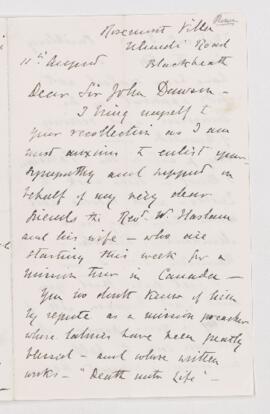 Rosemount Villa
Road
11th August Blackheath
Dear Sir John Dawson -
I bring myself to
your recollection as I am
most anxious to enlist your
sympathy and support on
behalf of my very dear
friends the Revd. W. Haslam
and his wife - who are
starting this week for a
mission tour in Canada -
You no doubt know of him
by repute as a mission preacher
whose labours have been greatly
blessed - and whose written
works - "Death unto Life" -